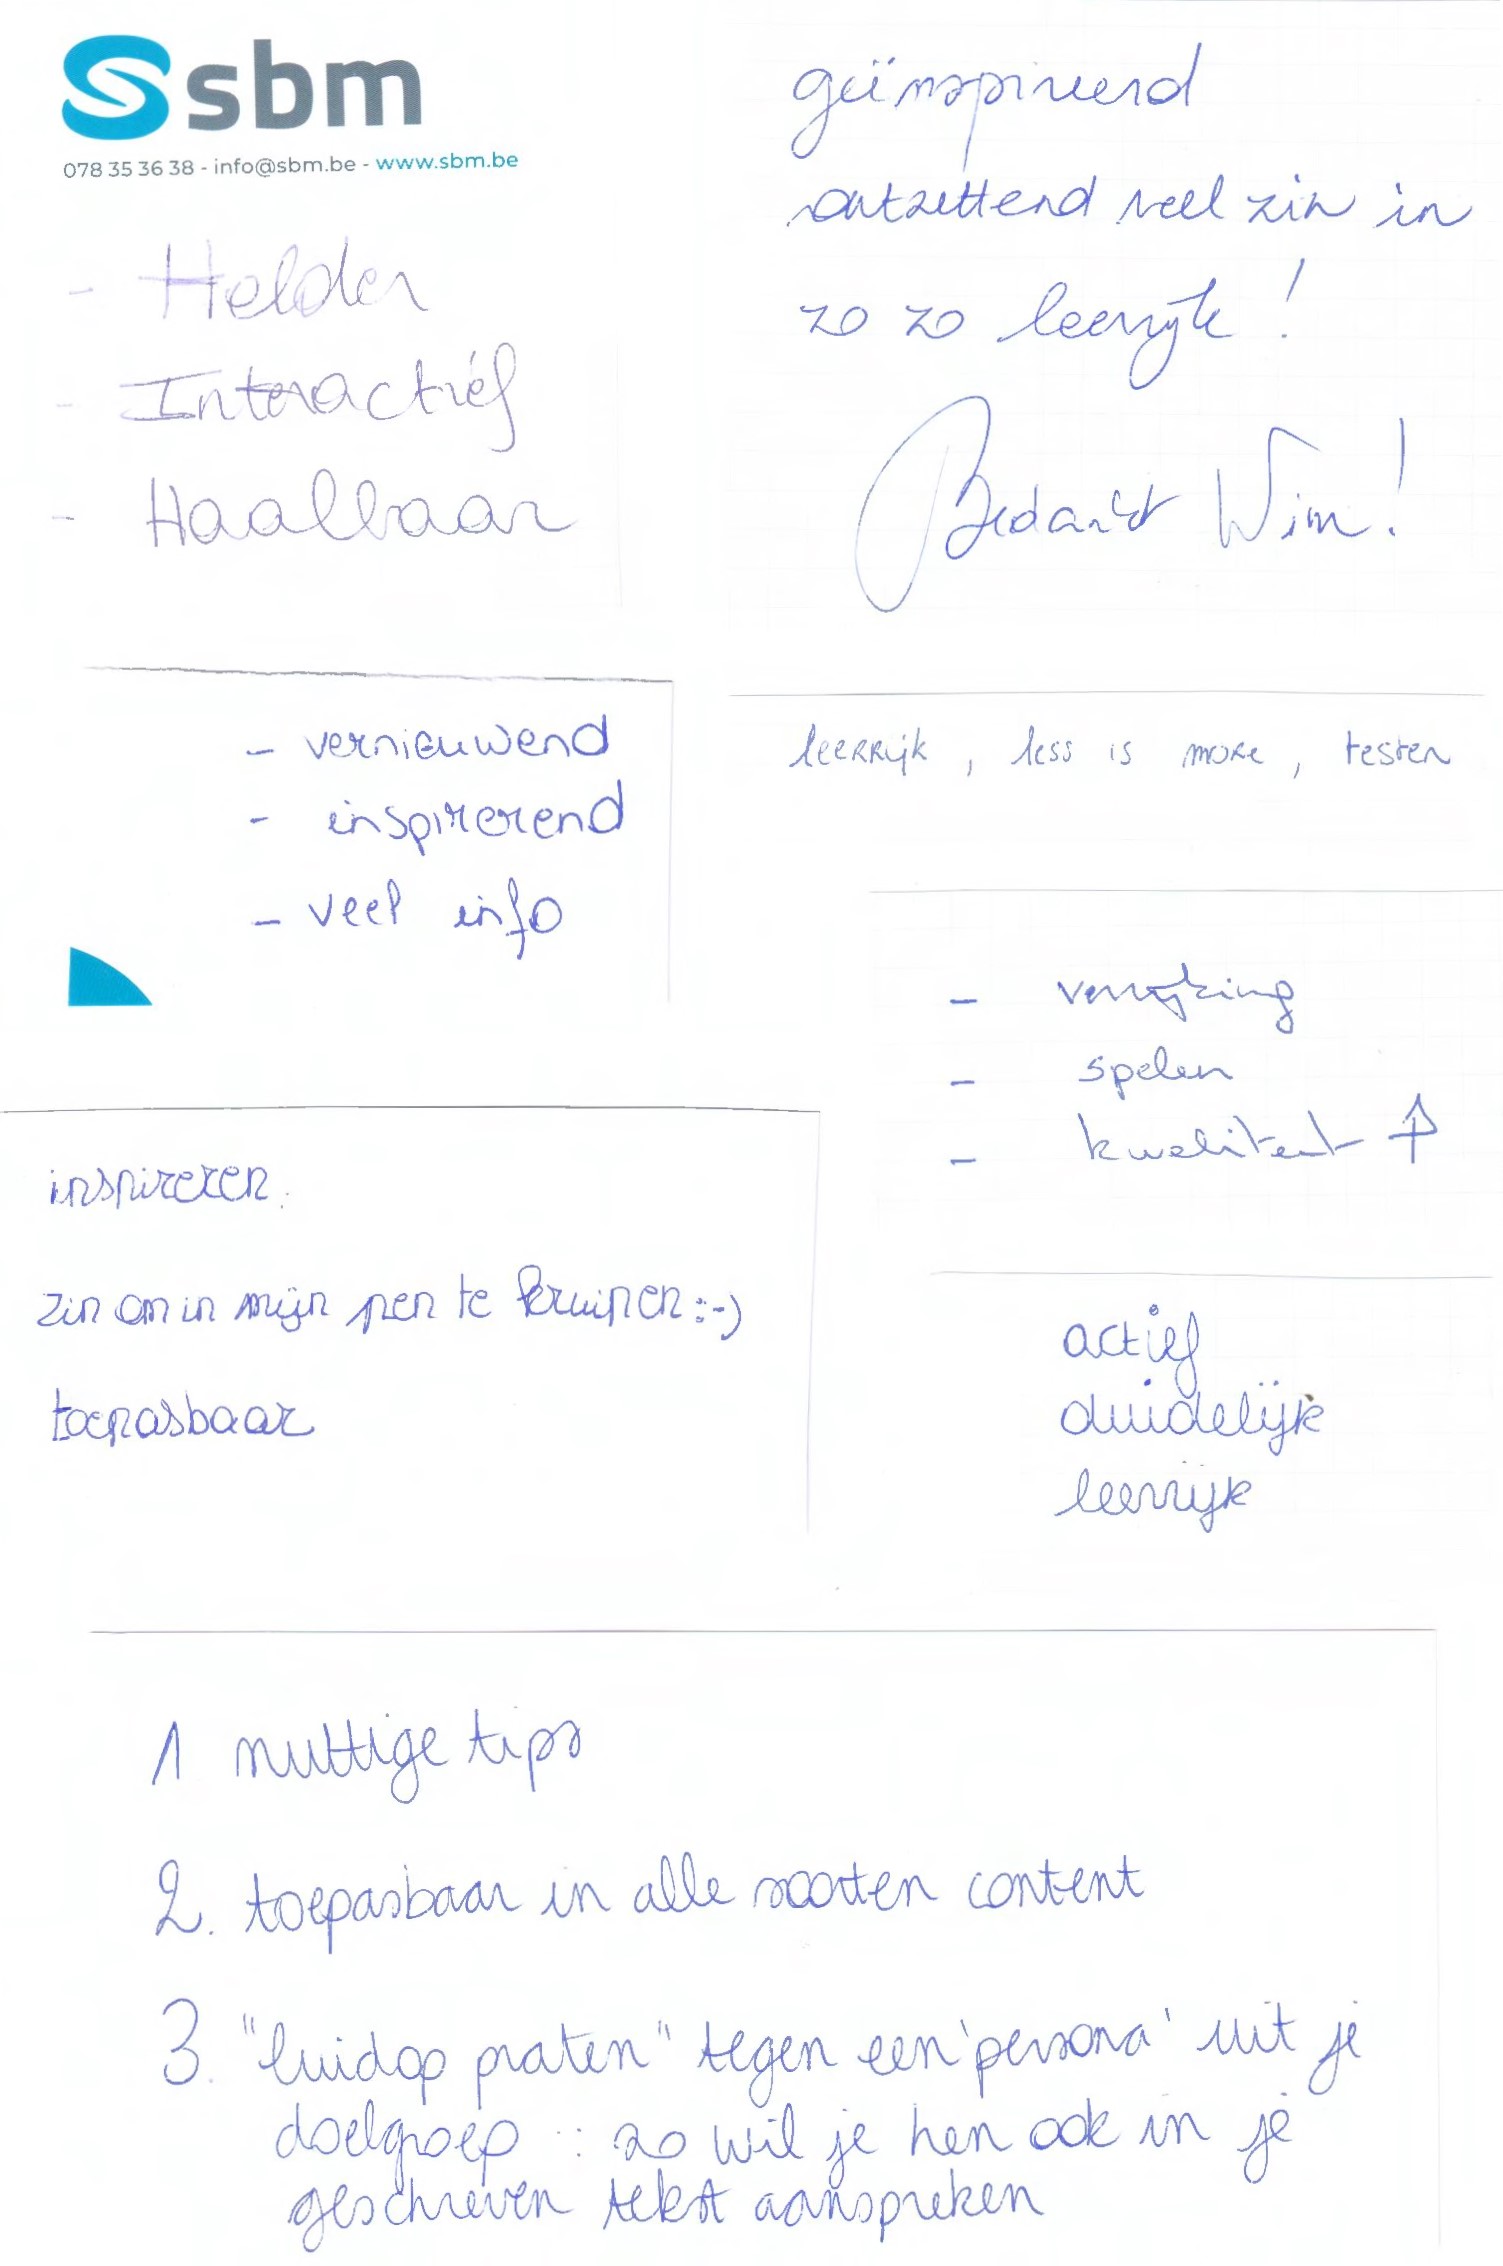 sbm
078 35 36 38 - info@sbm.be - www.sbm.be
- Helder
- Interactief
- Haalbaar
geïnspireerd
ontzettend veel zin in
zo zo leerrijk!
Bedankt Wim!
- vernieuwend
- inspirerend
- veel info
leerrijk, less is more, testen
- verrijking
- spelen
- kwaliteit ↑
inspireren.
zin om in mijn pen te kruipen :-)
toepasbaar
actief
duidelijk
leerrijk
1 nuttige tips
2. toepasbaar in alle soorten content
3. "luidop praten" tegen een 'persona' uit je
doelgroep : zo wil je hen ook in je
geschreven tekst aanspreken